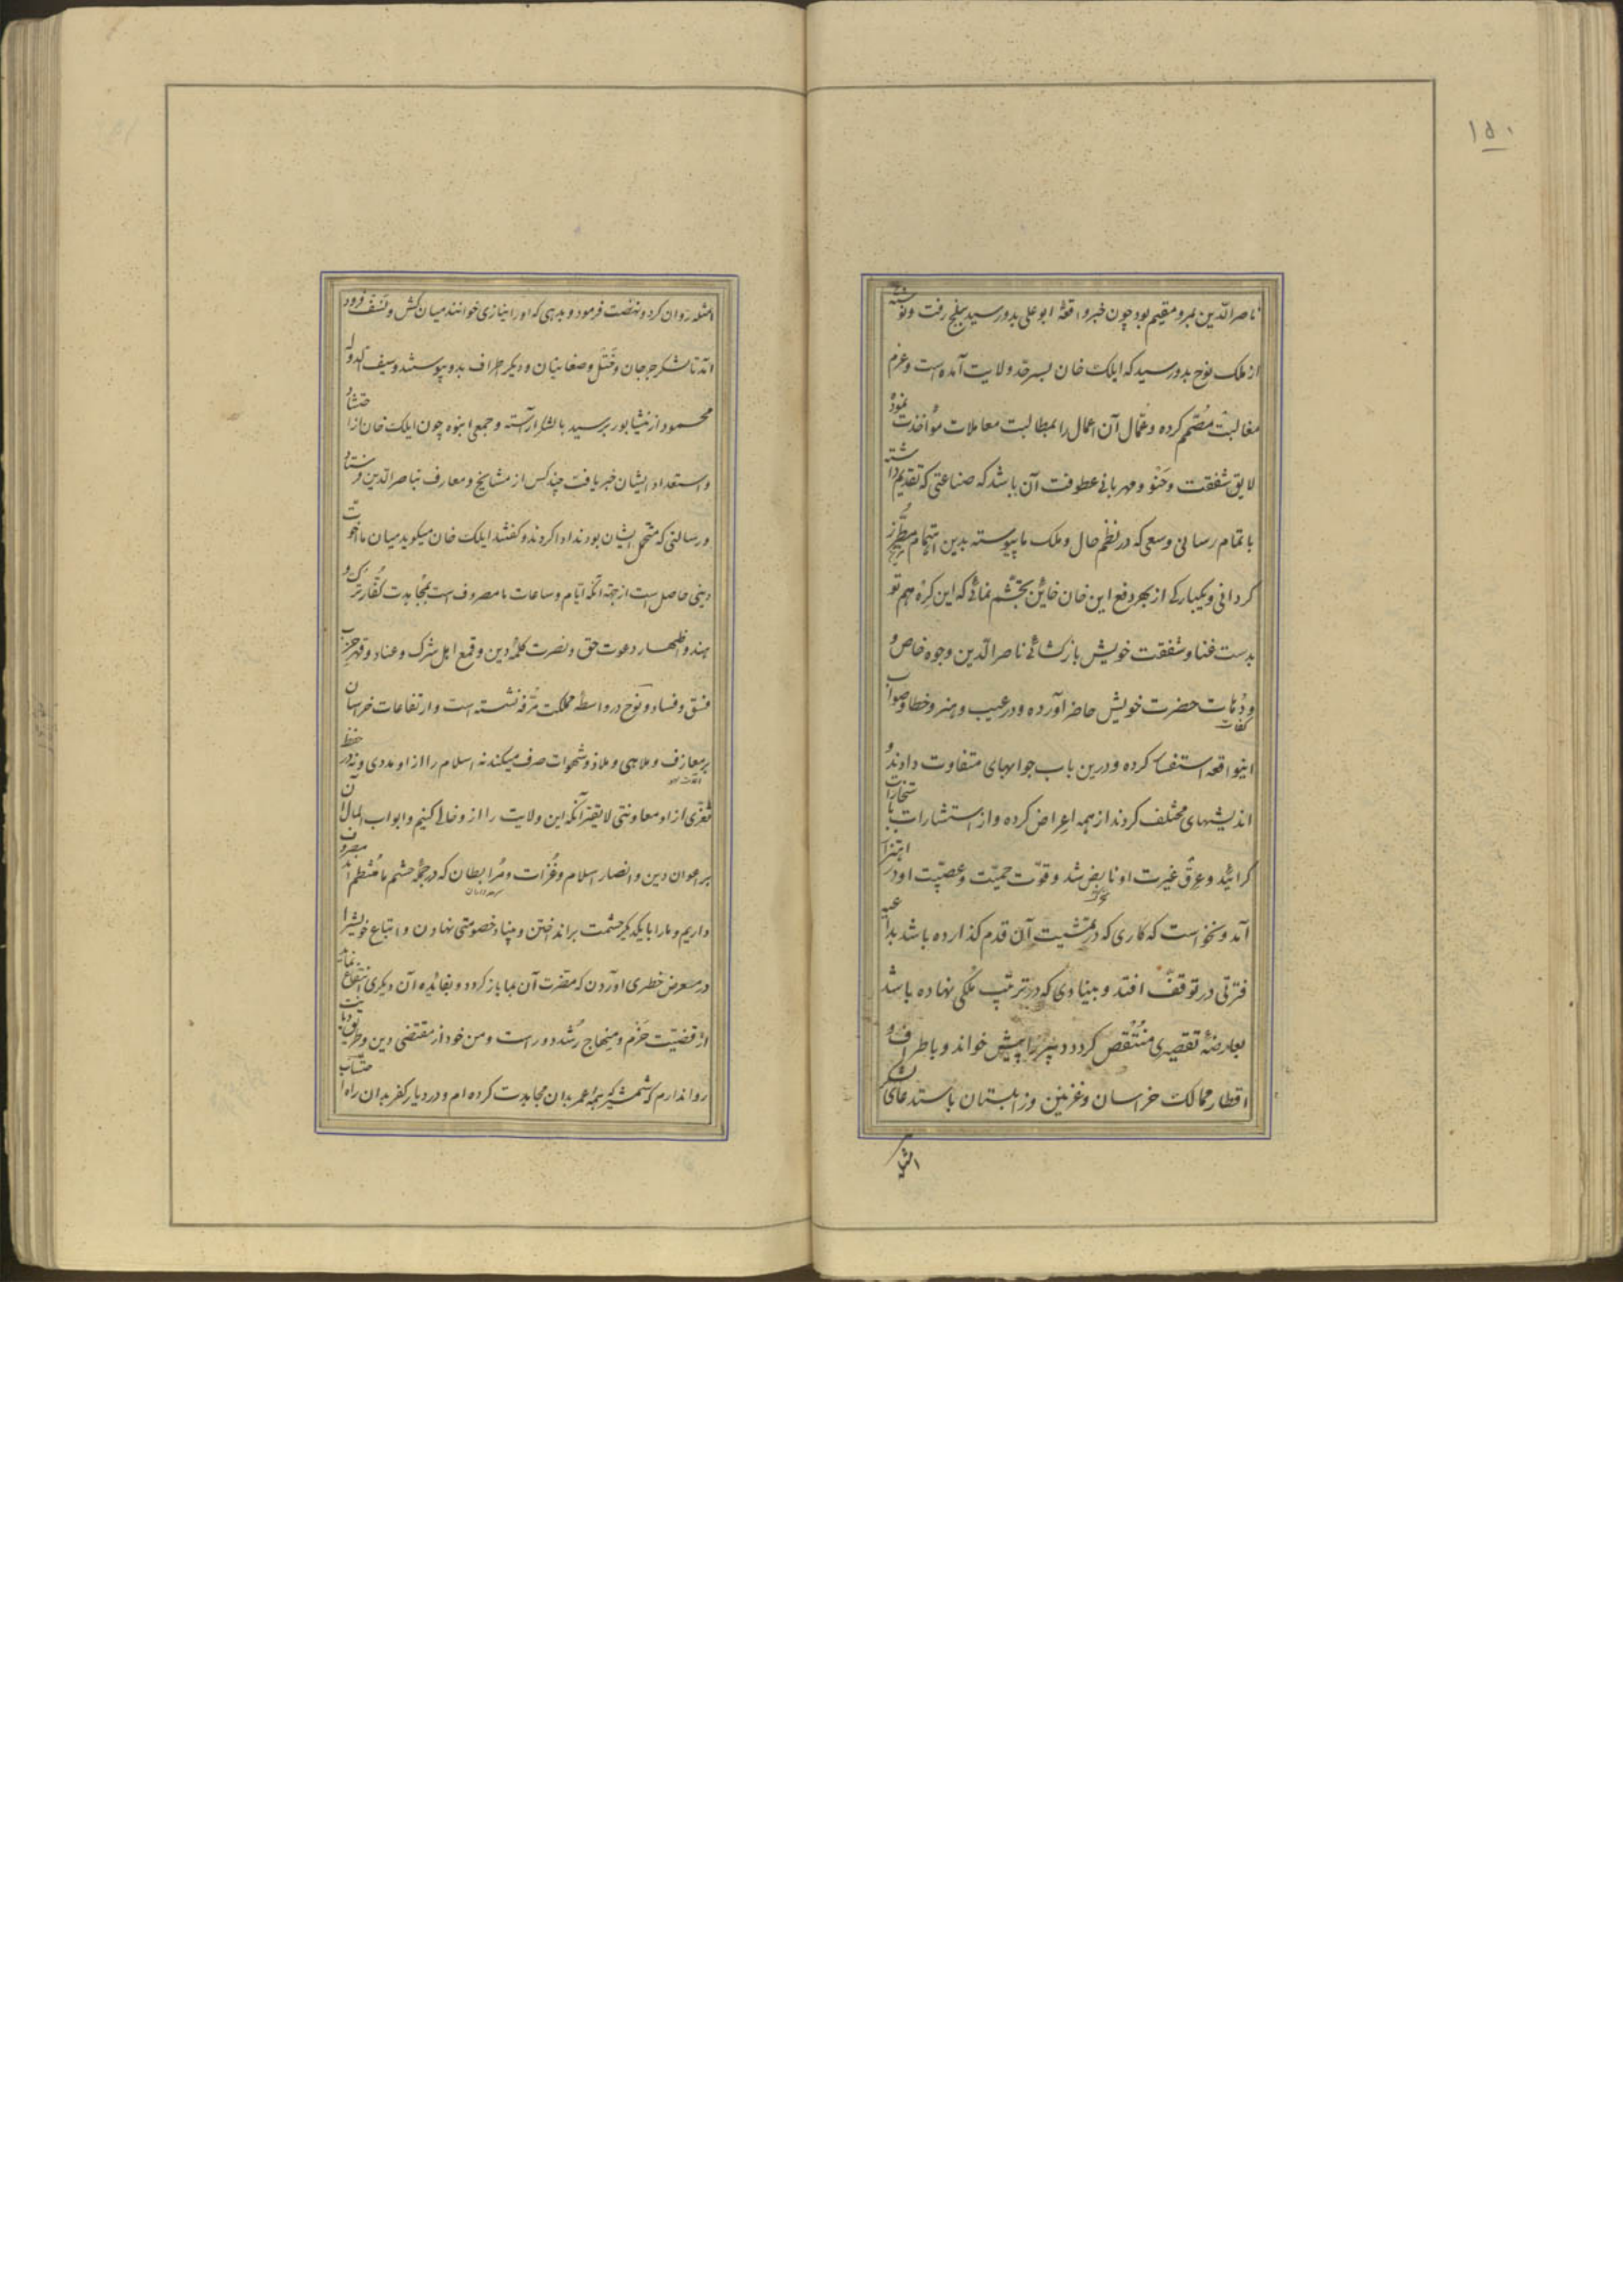 ۱۵۰
ناصر الدین بمرو مقیم بود چون خبر واقعهٔ ابو علی بدو رسید ببلخ رفت و نوشته
از ملک نوح بدو رسید که ایلک خان بسر حد ولایت آمده است و عزم
مغالبت مصمّم کرده و عمّال آن اعمال را بمطالبت معاملات مؤاخذت نمود و
لایق شفقت و حنو و مهربانی و عطوفت آن باشد که صناعتی که تقدیم داشته
با تمام رسانی و سعی که در نظم حال و ملک ما پیوسته بدین اهتمام مطرّز
گردانی و یکبارگی از بهر دفع این خان خاین تجشّم نمائی که این گره هم تو
بدست غنا و شفقت خویش باز گشائی ناصر الدین وجوه خاص و
و دُهات حضرت خویش حاضر آورده و در عیب و هنر و خطا و صواب
کفات
اینواقعه استفسار کرده و درین باب جوابهای متفاوت دادند و
اندیشهای مختلف کردند از همه اعراض کرده و از استشارات باستخارات
گرائید و عرق غیرت او نابض شد و قوّت حمیّت و عصبیّت او در اهتزاز
آمد و نخواست که کاری که در تمشیت آن قدم گذارده باشد بداعیه
فترتی در توقّف افتد و بنیادی که در ترتیب ملکی نهاده باشد
بعارضهٔ تقصیری منتقص گردد دبیر را پیش خواند و باطراف و
اقطار ممالک خراسان و غزنین و زابلستان باستدعای لشکر
امثله
امثله روان کرد و نهضت فرمود و بدیهی که او را نیازی خوانند میان کش و نسف فرود
آمد تا لشکر جرجان و ختّل و صغانیان و دیگر اطراف بدو پیوستند و سیف الدوله
محمود از نیشابور برسید با لشکر آراسته و جمعی انبوه چون ایلک خان از احتشاد
و استعداد ایشان خبر یافت چند کس از مشایخ و معارف بناصر الدین فرستاد
و رسالتی که متحمل ایشان بودند ادا کردند و گفتند ایلک خان میگوید میان ما اخوت
دینی حاصل است از جهة آنکه ایّام و ساعات ما مصروف است بمجاهدت کفّار ترک و
هند و اظهار دعوت حق و نصرت کلمهٔ دین و قمع اهل شرک و عناد و قهر حزب
فسق و فساد و نوح در واسطهٔ مملکت مرفّه نشسته است و ارتفاعات خراسان
بر معازف و ملاهی و ملاذ و شهوات صرف میکند نه اسلام را از او مددی و نه در حفظ
ثغری از او معاونتی لایقتر آنکه این ولایت را از و خالی کنیم و ابواب المال آن
بر اعوان دین و انصار اسلام و غزات و مرابطان که در جملهٔ حشم ما منتظم اند مصروف
داریم و ما را با یکدیگر حشمت بر انداختن و بنیاد خصومتی نهادن و اتباع خویش را
در معرض خطری آوردن که مضرت آن بما باز گردد و بفائده آن دیگری انتفاع نماید
از قضیّت حزم و منهاج رشد دور است و من خود از مقتضی دین و طریق دیانت
روا ندارم که شمشیر که همه عمر بدان مجاهدت کرده ام و در دیار کفر بدان راه احتساب